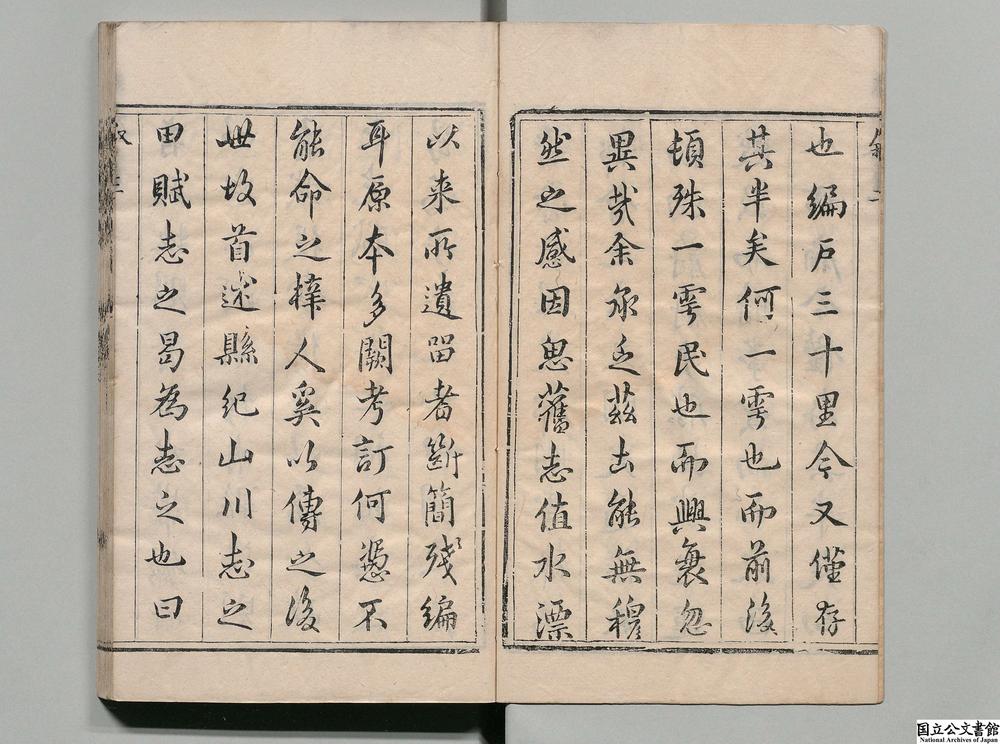 也編戶三十里今又僅存
其半矣何一雩也而前後
頓殊一雩民也而興衰忽
異哉余承乏茲土能無穆
然之感因思舊志值水漂
以来所遺留者斷簡殘編
耳原本多闕考訂何憑不
能命之梓人奚以傳之後
世故首述縣紀山川志之
田賦志之曷為志之也曰
叙
国立公文書館
National Archives of Japan